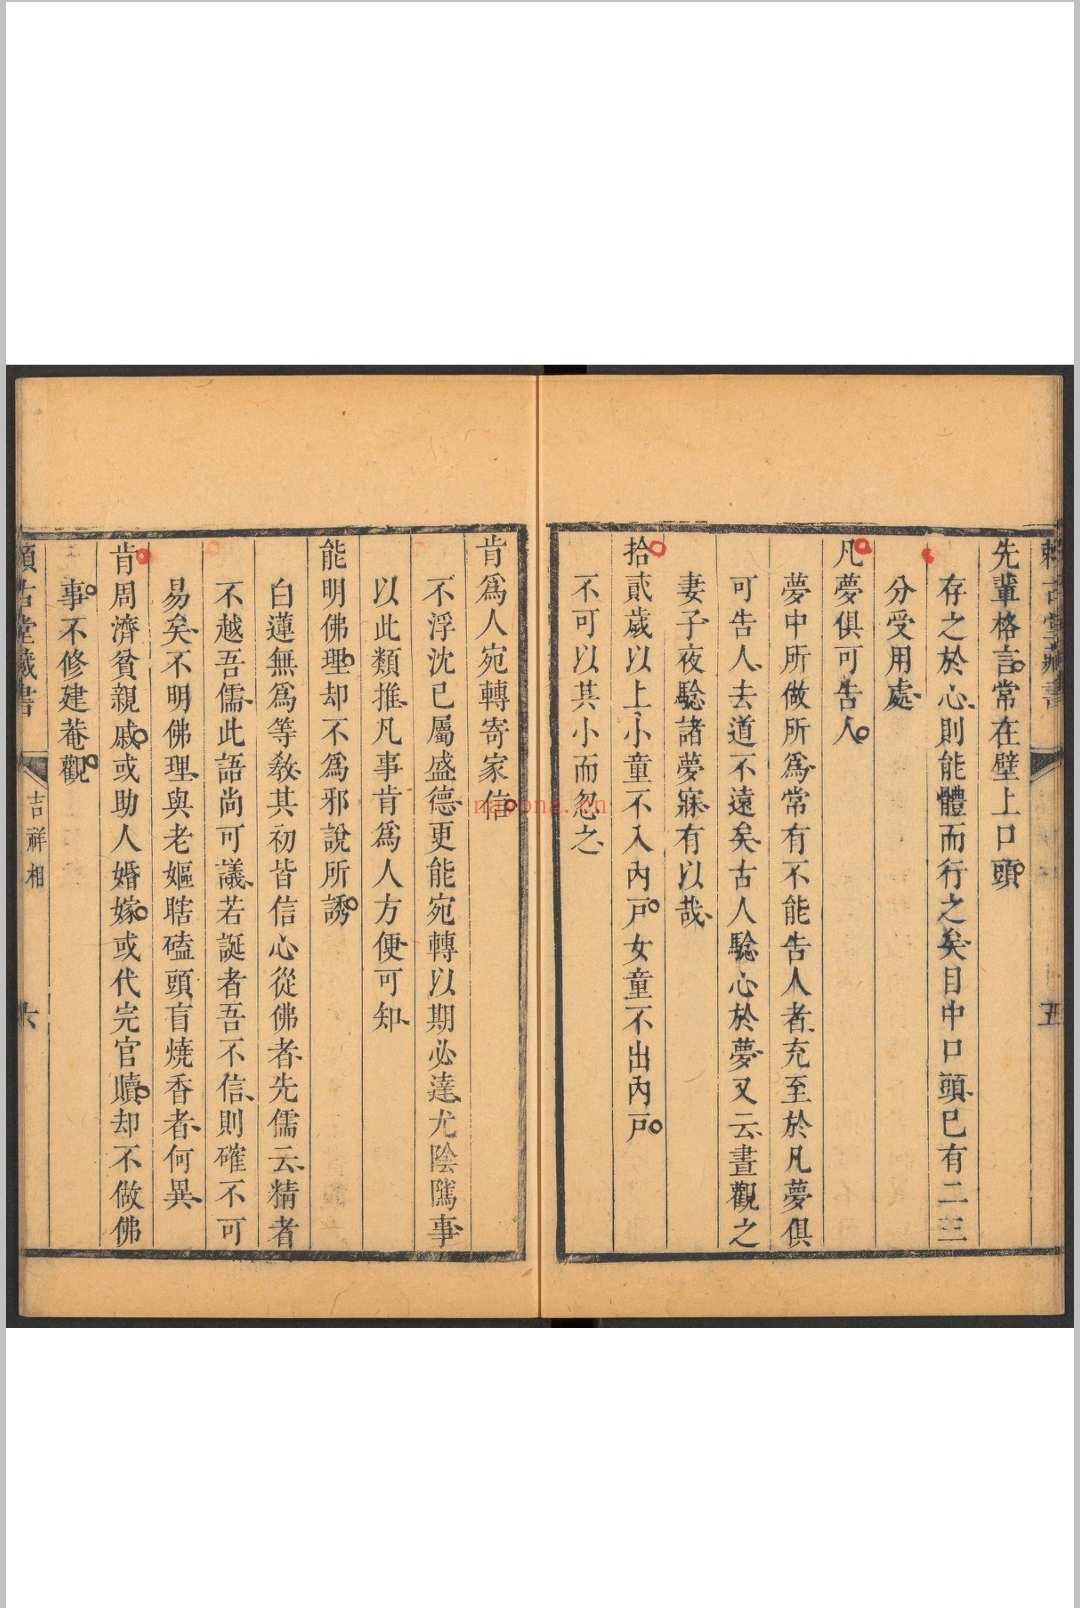 賴古堂藏書
五
先輩格言常在壁上口頭
存之於心則能體而行之矣目中口頭已有二三
分受用處
凡夢俱可告人
夢中所做所爲常有不能告人者充至於凡夢俱
可告人去道不遠矣古人驗心於夢又云晝觀之
妻子夜騐諸夢寐有以哉
拾貳歲以上小童不入內戸女童不出內戸
不可以其小而忽之
肯爲人宛轉寄家信
不浮沈已屬盛德更能宛轉以期必達尤陰隲事
以此類推凡事肯爲人方便可知
能明佛理却不爲邪說所誘
白蓮無爲等教其初皆信心從佛者先儒云精者
不越吾儒此語尚可議若誕者吾不信則確不可
易矣不明佛理與老嫗瞎磕頭盲燒香者何異
肯周濟貧親戚或助人婚嫁或代完官贖却不做佛
事不修建菴觀
賴古堂藏書
吉祥相
六
nabona.cn